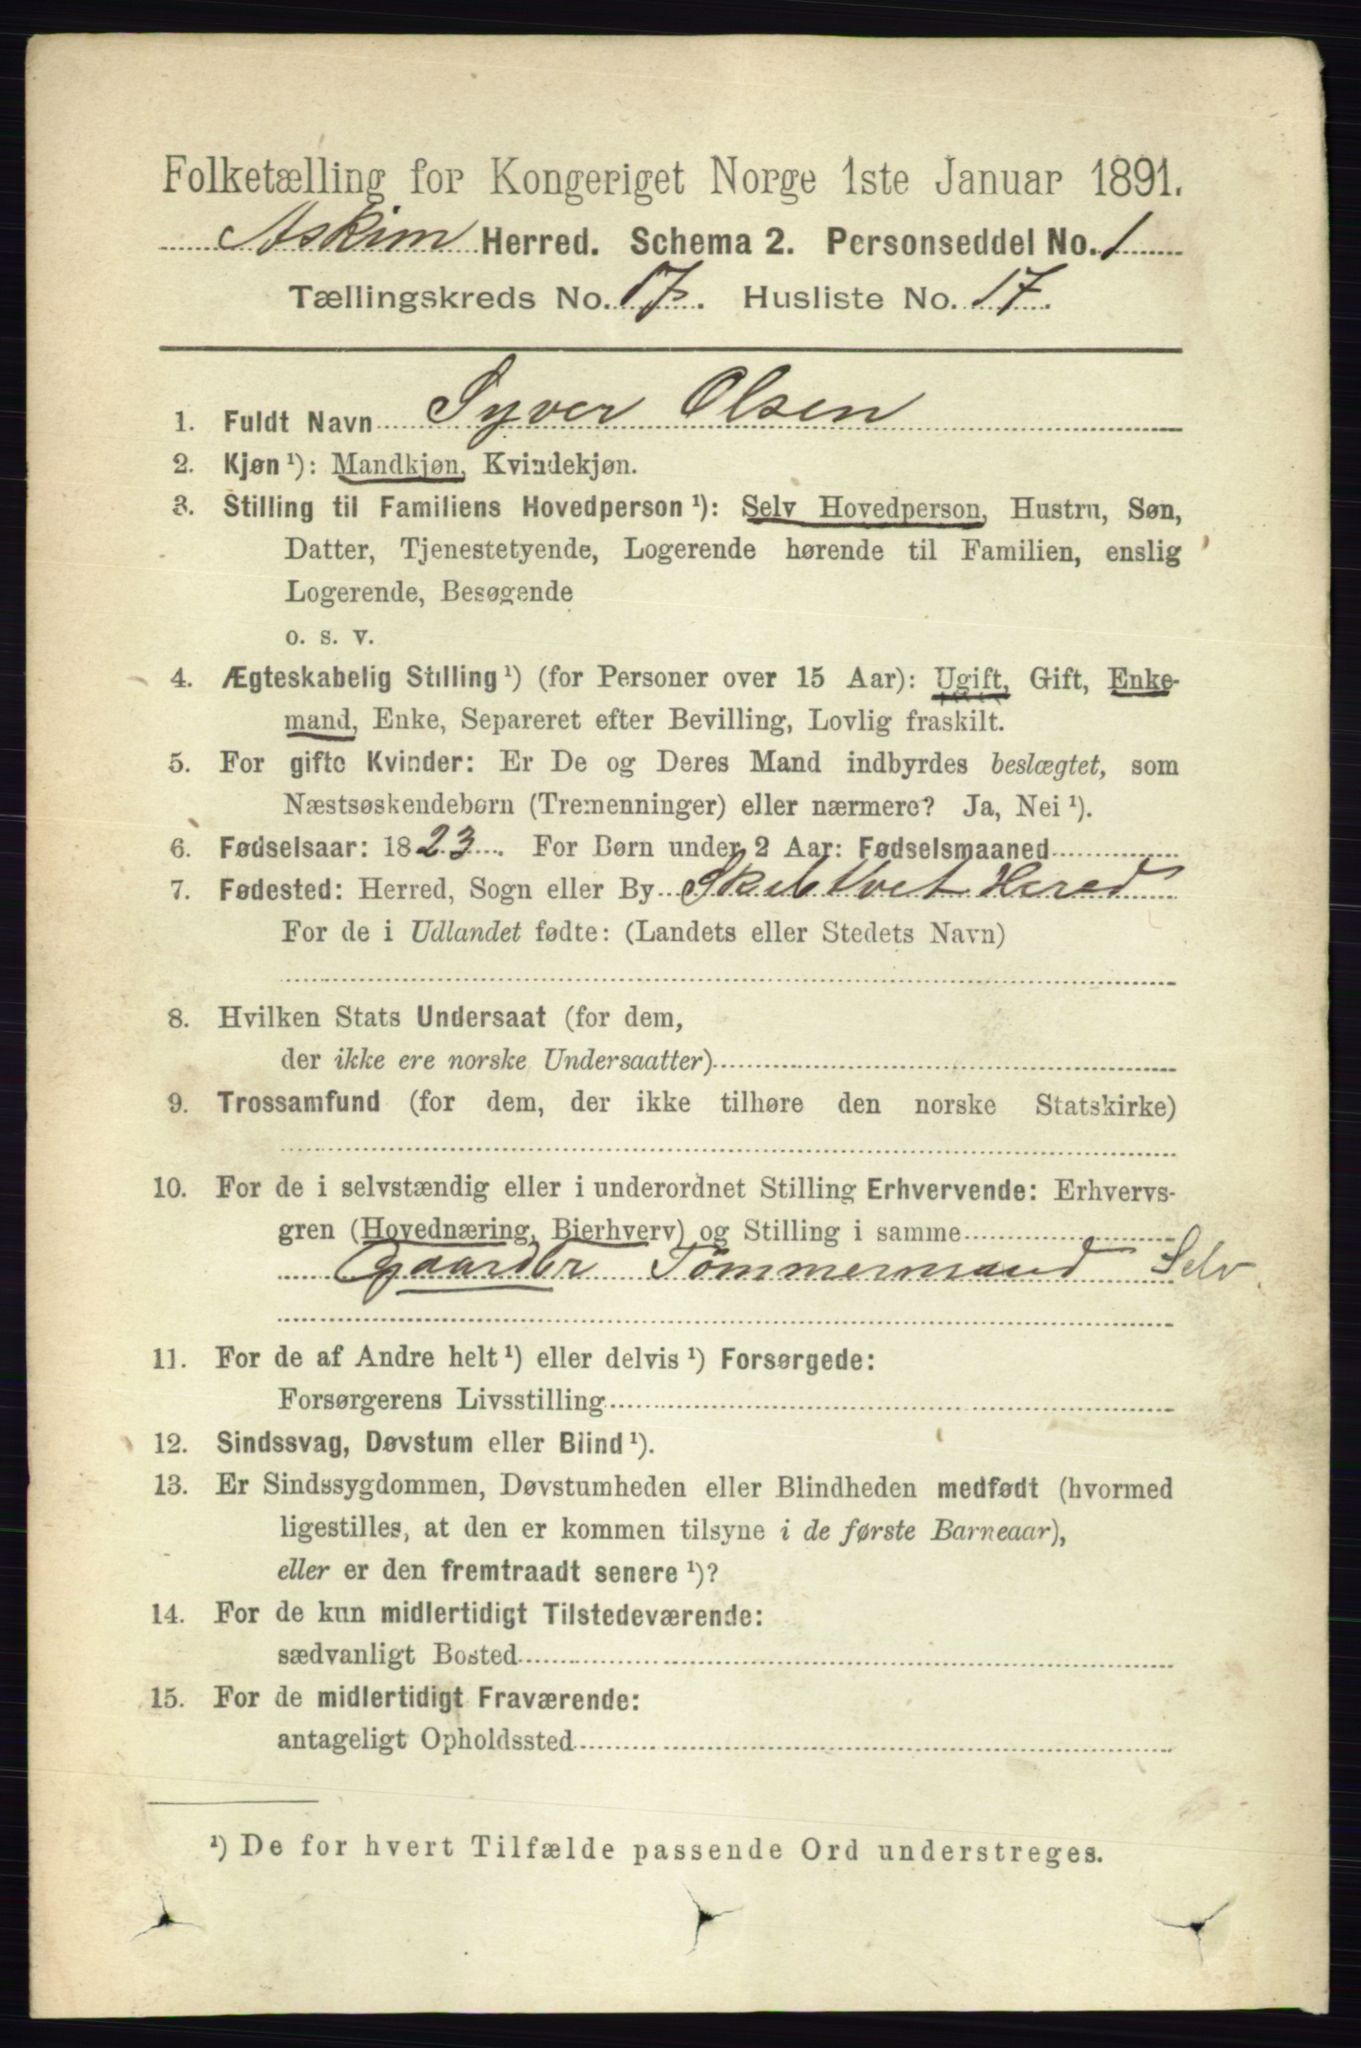 Folketælling for Kongeriget Norge 1ste Januar 1891.
Askim Herred. Schema 2. Personseddel No. 1
Tællingskreds No. 17. Husliste No. 17.
1. Fuldt Navn Syver Olsen
2. Kjøn ¹): Mandkjøn, Kvindekjøn.
3. Stilling til Familiens Hovedperson ¹): Selv Hovedperson, Hustru, Søn,
Datter, Tjenestetyende, Logerende hørende til Familien, enslig
Logerende, Besøgende
o. s. v.
4. Ægteskabelig Stilling ¹) (for Personer over 15 Aar): Ugift, Gift, Enke-
mand, Enke, Separeret efter Bevilling, Lovlig fraskilt.
5. For gifte Kvinder: Er De og Deres Mand indbyrdes beslægtet, som
Næstsøskendebørn (Tremenninger) eller nærmere? Ja, Nei ¹).
6. Fødselsaar: 1823. For Børn under 2 Aar: Fødselsmaaned
7. Fødested: Herred, Sogn eller By Skibtvet Hered
For de i Udlandet fødte: (Landets eller Stedets Navn)
8. Hvilken Stats Undersaat (for dem,
der ikke ere norske Undersaatter)
9. Trossamfund (for dem, der ikke tilhøre den norske Statskirke)
10. For de i selvstændig eller i underordnet Stilling Erhvervende: Erhvervs-
gren (Hovednæring, Bierhverv) og Stilling i samme
Gaardbr Tömmermand Selv
11. For de af Andre helt ¹) eller delvis ¹) Forsørgede:
Forsørgerens Livsstilling
12. Sindssvag, Døvstum eller Blind ¹).
13. Er Sindssygdommen, Døvstumheden eller Blindheden medfødt (hvormed
ligestilles, at den er kommen tilsyne i de første Barneaar),
eller er den fremtraadt senere ¹)?
14. For de kun midlertidigt Tilstedeværende:
sædvanligt Bosted
15. For de midlertidigt Fraværende:
antageligt Opholdssted
¹) De for hvert Tilfælde passende Ord understreges.